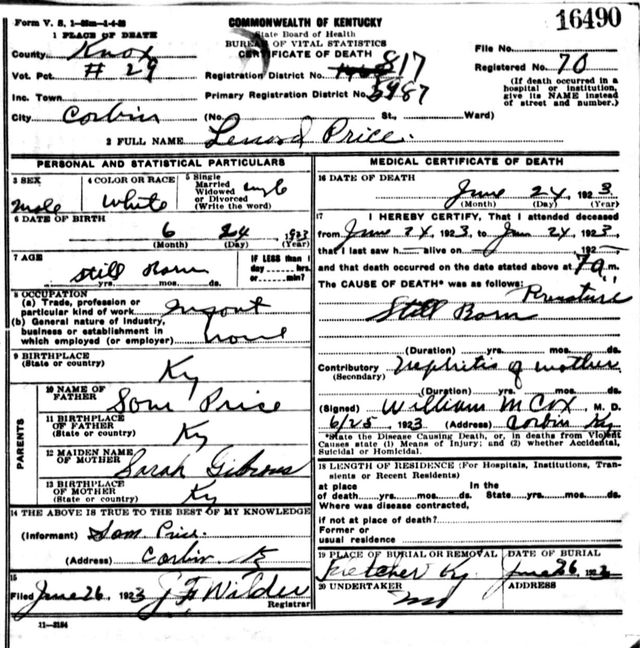 Form V. S. 1-
COMMONWEALTH OF KENTUCKY
16490
1 PLACE OF DEATH
State Board of Health
County Knox
BUREAU OF VITAL STATISTICS
CERTIFICATE OF DEATH
File No.
Vot. Pct. #29
Registration District No. 817
Registered No. 70
Inc. Town
Primary Registration District No. 5987
(If death occurred in a hospital or institution, give its NAME instead of street and number.)
City Corbin
(No. St., Ward)
2 FULL NAME Lenord Price.
PERSONAL AND STATISTICAL PARTICULARS
3 SEX
Male
4 COLOR OR RACE
White
5 Single
Married
Widowed
or Divorced
(Write the word)
6 DATE OF BIRTH
6 24 1923
(Month) (Day) (Year)
7 AGE
Still Born
yrs. mos. ds.
IF LESS than 1
day hrs.
or min.?
8 OCCUPATION
(a) Trade, profession or
particular kind of work Infant
(b) General nature of industry,
business or establishment in
which employed (or employer) none
9 BIRTHPLACE
(State or country)
Ky
PARENTS
10 NAME OF
FATHER
Som Price
11 BIRTHPLACE
OF FATHER
(State or country)
Ky
12 MAIDEN NAME
OF MOTHER
Sarah Gibsons
13 BIRTHPLACE
OF MOTHER
(State or country)
Ky
14 THE ABOVE IS TRUE TO THE BEST OF MY KNOWLEDGE
(Informant) Som Price.
(Address) Corbin Ky
15
Filed June 26, 1923 J F Wilder
Registrar
11-3184
MEDICAL CERTIFICATE OF DEATH
16 DATE OF DEATH
June 24, 1923
(Month) (Day) (Year)
17 I HEREBY CERTIFY, That I attended deceased
from June 24, 1923, to Jun 24, 1923,
that I last saw h alive on , 192
and that death occurred on the date stated above at 7 a m.
The CAUSE OF DEATH* was as follows:
Still Born
(Duration) yrs. mos. ds.
Contributory Nephritis of mother
(Secondary)
(Duration) yrs. mos. ds.
(Signed) William M Cox, M. D.
6/25, 1923 (Address) Corbin Ky
*State the Disease Causing Death, or, in deaths from Violent
Causes state (1) Means of Injury; and (2) whether Accidental,
Suicidal or Homicidal.
18 LENGTH OF RESIDENCE (For Hospitals, Institutions, Tran-
sients or Recent Residents)
at place
of death yrs. mos. ds.
In the
State yrs. mos. ds.
Where was disease contracted,
if not at place of death?
Former or
usual residence
19 PLACE OF BURIAL OR REMOVAL
Ky.
DATE OF BURIAL
June 26, 1923
20 UNDERTAKER
ADDRESS